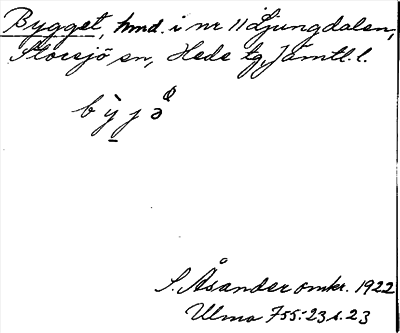 Bygget, hmd. i nr 11 Ljungdalen,
Storsjö sn, Hede tg, Jämtl. l.
S. Åsander omkr. 1922
Ulma 755:23 s. 23